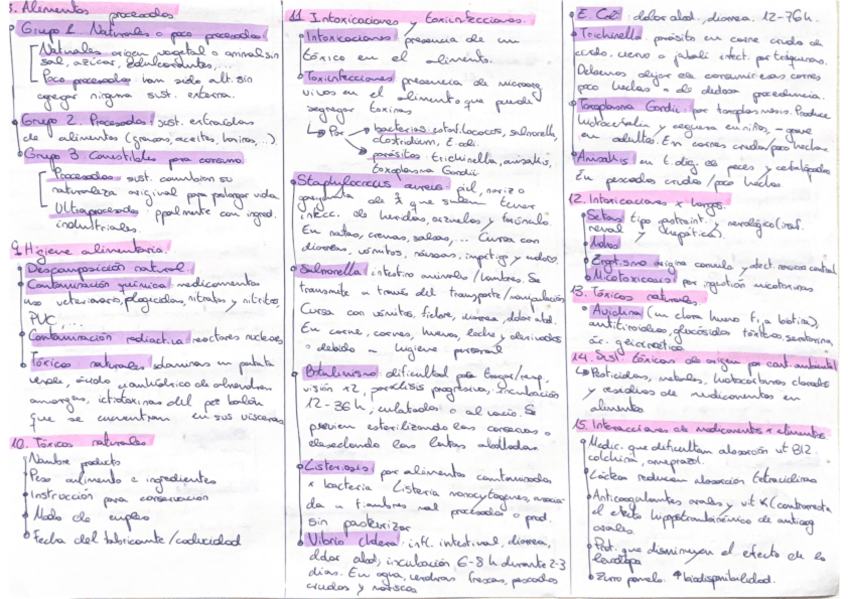 8. Alimentos procesados
Grupo 1. Naturales o poco procesados:
Naturales origen vegetal o animal sin
sal, azúcar, edulcorantes,...
Poco procesados: han sido alt. sin
agregar ninguna sust. externa.
Grupo 2. Procesados: sust. extraídas
de alimentos (grasas, aceites, harinas,...)
Grupo 3. Comestibles para consumo
Procesados: sust. cambian su
naturaleza original para prolongar vida
Ultraprocesados: ppalmente con ingred.
industriales.
9. Higiene alimentaria.
Descomposición natural.
Contaminación química: medicamentos
uso veterinario, plaguicidas, nitratos y nitritos,
PVC,...
Contaminación radiactiva: reactores nucleares
Tóxicos naturales: solaninas en patata
verde, ácido cianhídrico de almendras
amargas, ictiotoxinas del pez balón
que se encuentran en sus vísceras
10. Tóxicos naturales
Nombre producto
Peso alimento e ingredientes
Instrucción para conservación
Modo de empleo
Fecha del fabricante/caducidad
11. Intoxicaciones y toxiinfecciones.
Intoxicaciones: presencia de un
tóxico en el alimento.
Toxiinfecciones: presencia de microorg
vivos en el alimento que puede
segregar toxinas
Por bacterias: estafilococos, salmonella,
clostridium, E. coli.
parásitos: trichinella, anisakis,
toxoplasma Gondii
Staphylococcus aureus: piel, nariz o
garganta de que suelen tener
infecc. de heridas, orzuelos y forúnculo.
En natas, cremas, salsas,... Cursa con
diarreas, vómitos, náuseas,
Salmonella: intestino animales/hombres. Se
transmite a través del transporte/manipulación
Cursa con vómitos, fiebre, diarrea, dolor abd.
En carne, carnes, huevos, leche y derivados
o debido higiene personal
Botulinismo: dificultad para tragar/resp,
visión x2, parálisis progresiva, incubación
12-36h, enlatados o al vacío. Se
previene esterilizando las conservas o
desechando las latas abolladas
Listeriosis: por alimentos contaminados
x bacteria Listeria monocytogenes, asocia-
da a fiambres mal procesados o prod.
sin pasteurizar
Vibrio cólera: infl. intestinal, diarrea,
dolor abd, incubación 6-8h durante 2-3
días. En agua, verduras frescas, pescados
crudos y mariscos
E. Coli: dolor abd., diarrea. 12-76h.
Trichinella: parásito en carne cruda de
cerdo, ciervo o jabalí infect. por triquinas.
Debemos dejar de consumir esas carnes
poco hechas o de dudosa procedencia.
Toxoplasma Gondii: por toxoplasmosis. Produce
hidrocefalia y ceguera en niños, - grave
en adultos. En carnes crudas/poco hechas
Anisakis: en t. dig. de peces y cefalópodos
En pescados crudos/poco hechos
12. Intoxicaciones x hongos.
Setas tipo gastroint. y neurológico (insf.
renal y hepática).
Ergotismo origina cornezuelo y afect. nervioso central
Micotoxicosis: por ingestión micotoxinas
13. Tóxicos naturales.
Avidina (en clara huevo fija biotina),
antitiroideos, glucósidos tóxicos,
14. Sust. tóxicas de origen por cont. ambiental
Pesticidas, metales, hidrocarburos clorados
y residuos de medicamentos en
alimentos
15. Interacciones de medicamentos x alimentos.
Medic. que dificultan absorción vit B12.
colchicina, omeprazol.
Lácteos reducen absorción tetraciclinas
Anticoagulantes orales y vit K (contrarresta
el efecto hipoprotrombinémico de anticoag
orales
Prot. que disminuyen el efecto de la
levodopa
Zumo pomelo: ↑ biodisponibilidad.